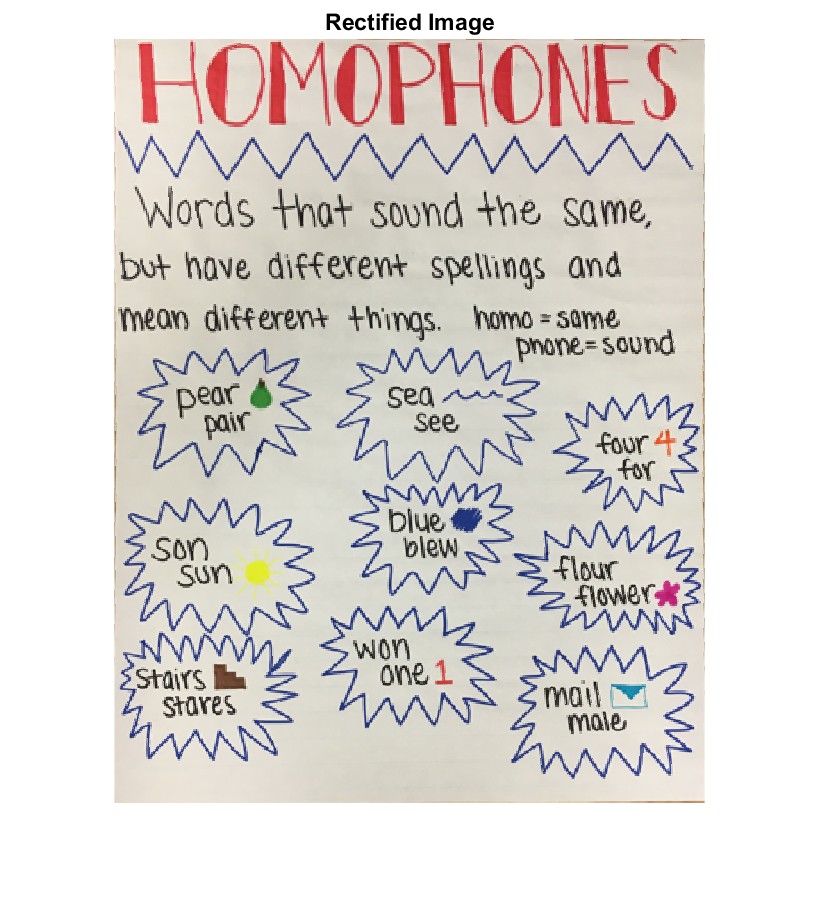 Rectified Image
HOMOPHONES
Words that sound the same,
but have different spellings and
mean different things. homo = same
phone = sound
pear
pair
sea
see
four 4
for
son
sun
blue
blew
flour
flower
stairs
stares
won
one 1
mail
male